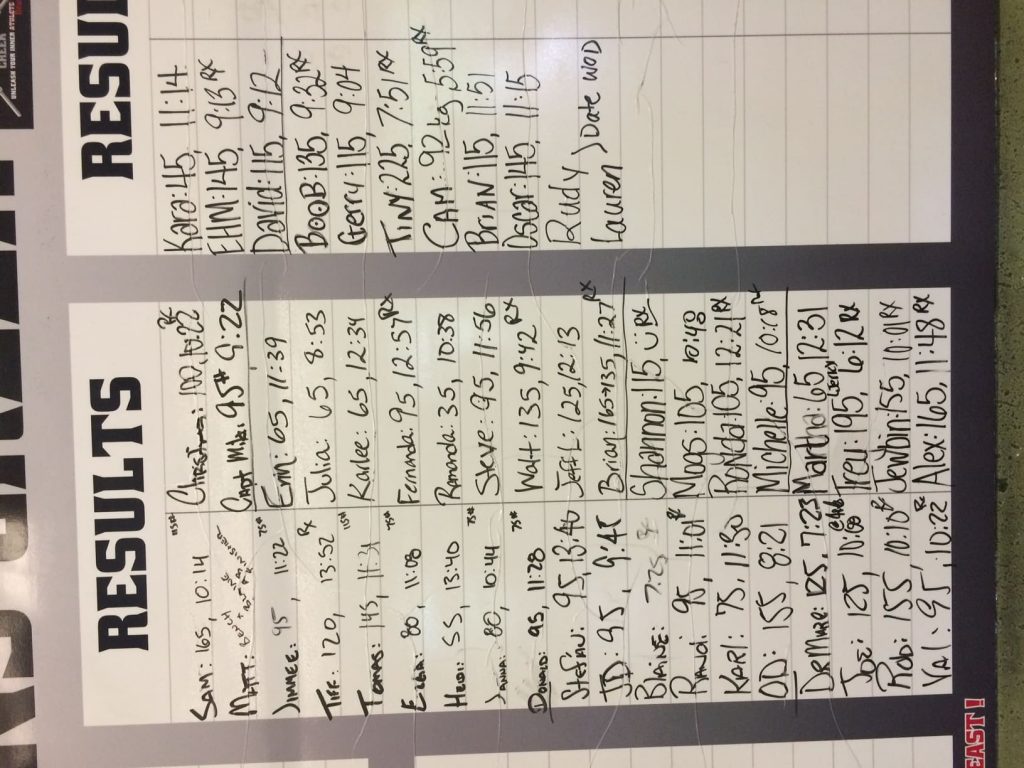 RESULTS
SAM: 165, 10:14 115#
MATT:
JIMMEE: 95 11:22 75#
TIFF: 120, 13:52 RX
TOMAS: 145, 11:31 115#
80 11:08 75#
HEIDI: 55, 13:40
JANNA: 80, 10:44 75#
DONALD: 95, 11:28 75#
STEFAN: 95, 13:46
JD: 95, 9:45
BLAINE: 7:25
RAND: 95, 11:01 RX
KARL: 75, 11:30
OD: 155, 8:21
DERMURE: 125, 7:23
JOE: 125, 10:08
ROB: 155, 10:10 RX
VAL: 95, 10:22 RX
CHRISTI: 100, 10:22 RX
MIKE: 95# 9:22
Em: 65, 11:39
Julia: 65, 8:53
Karlee: 65, 12:34
Fernanda: 95, 12:57 RX
Ramanda: 35, 10:38
Steve: 95, 11:56
Walt: 135, 9:42 RX
Jeff L: 125, 12:13
Brian: 165+135, 11:27 RX
Shannon: 115, RX
Mags: 105, 10:40
Ronda: 105, 12:21 RX
Michelle: 95, 10:18 RX
Martha: 65, 12:31
Trey: 195, 6:12 RX
Jewbin: 155, 10:01 RX
Alex: 165, 11:48 RX
RESU
Kara: 45, 11:14
EHM: 145, 9:13 RX
David: 115, 9:12
BOOB: 135, 9:32 RX
Gerry: 115, 9:04
TINY: 225, 7:51 RX
CAM: 92kg, 5:59 RX
BRIAN: 115, 11:51
Oscar: 145, 11:15
Rudy
Lauren } Date WOD
UNLEASH YOUR INNER ATHLETE
EAST!